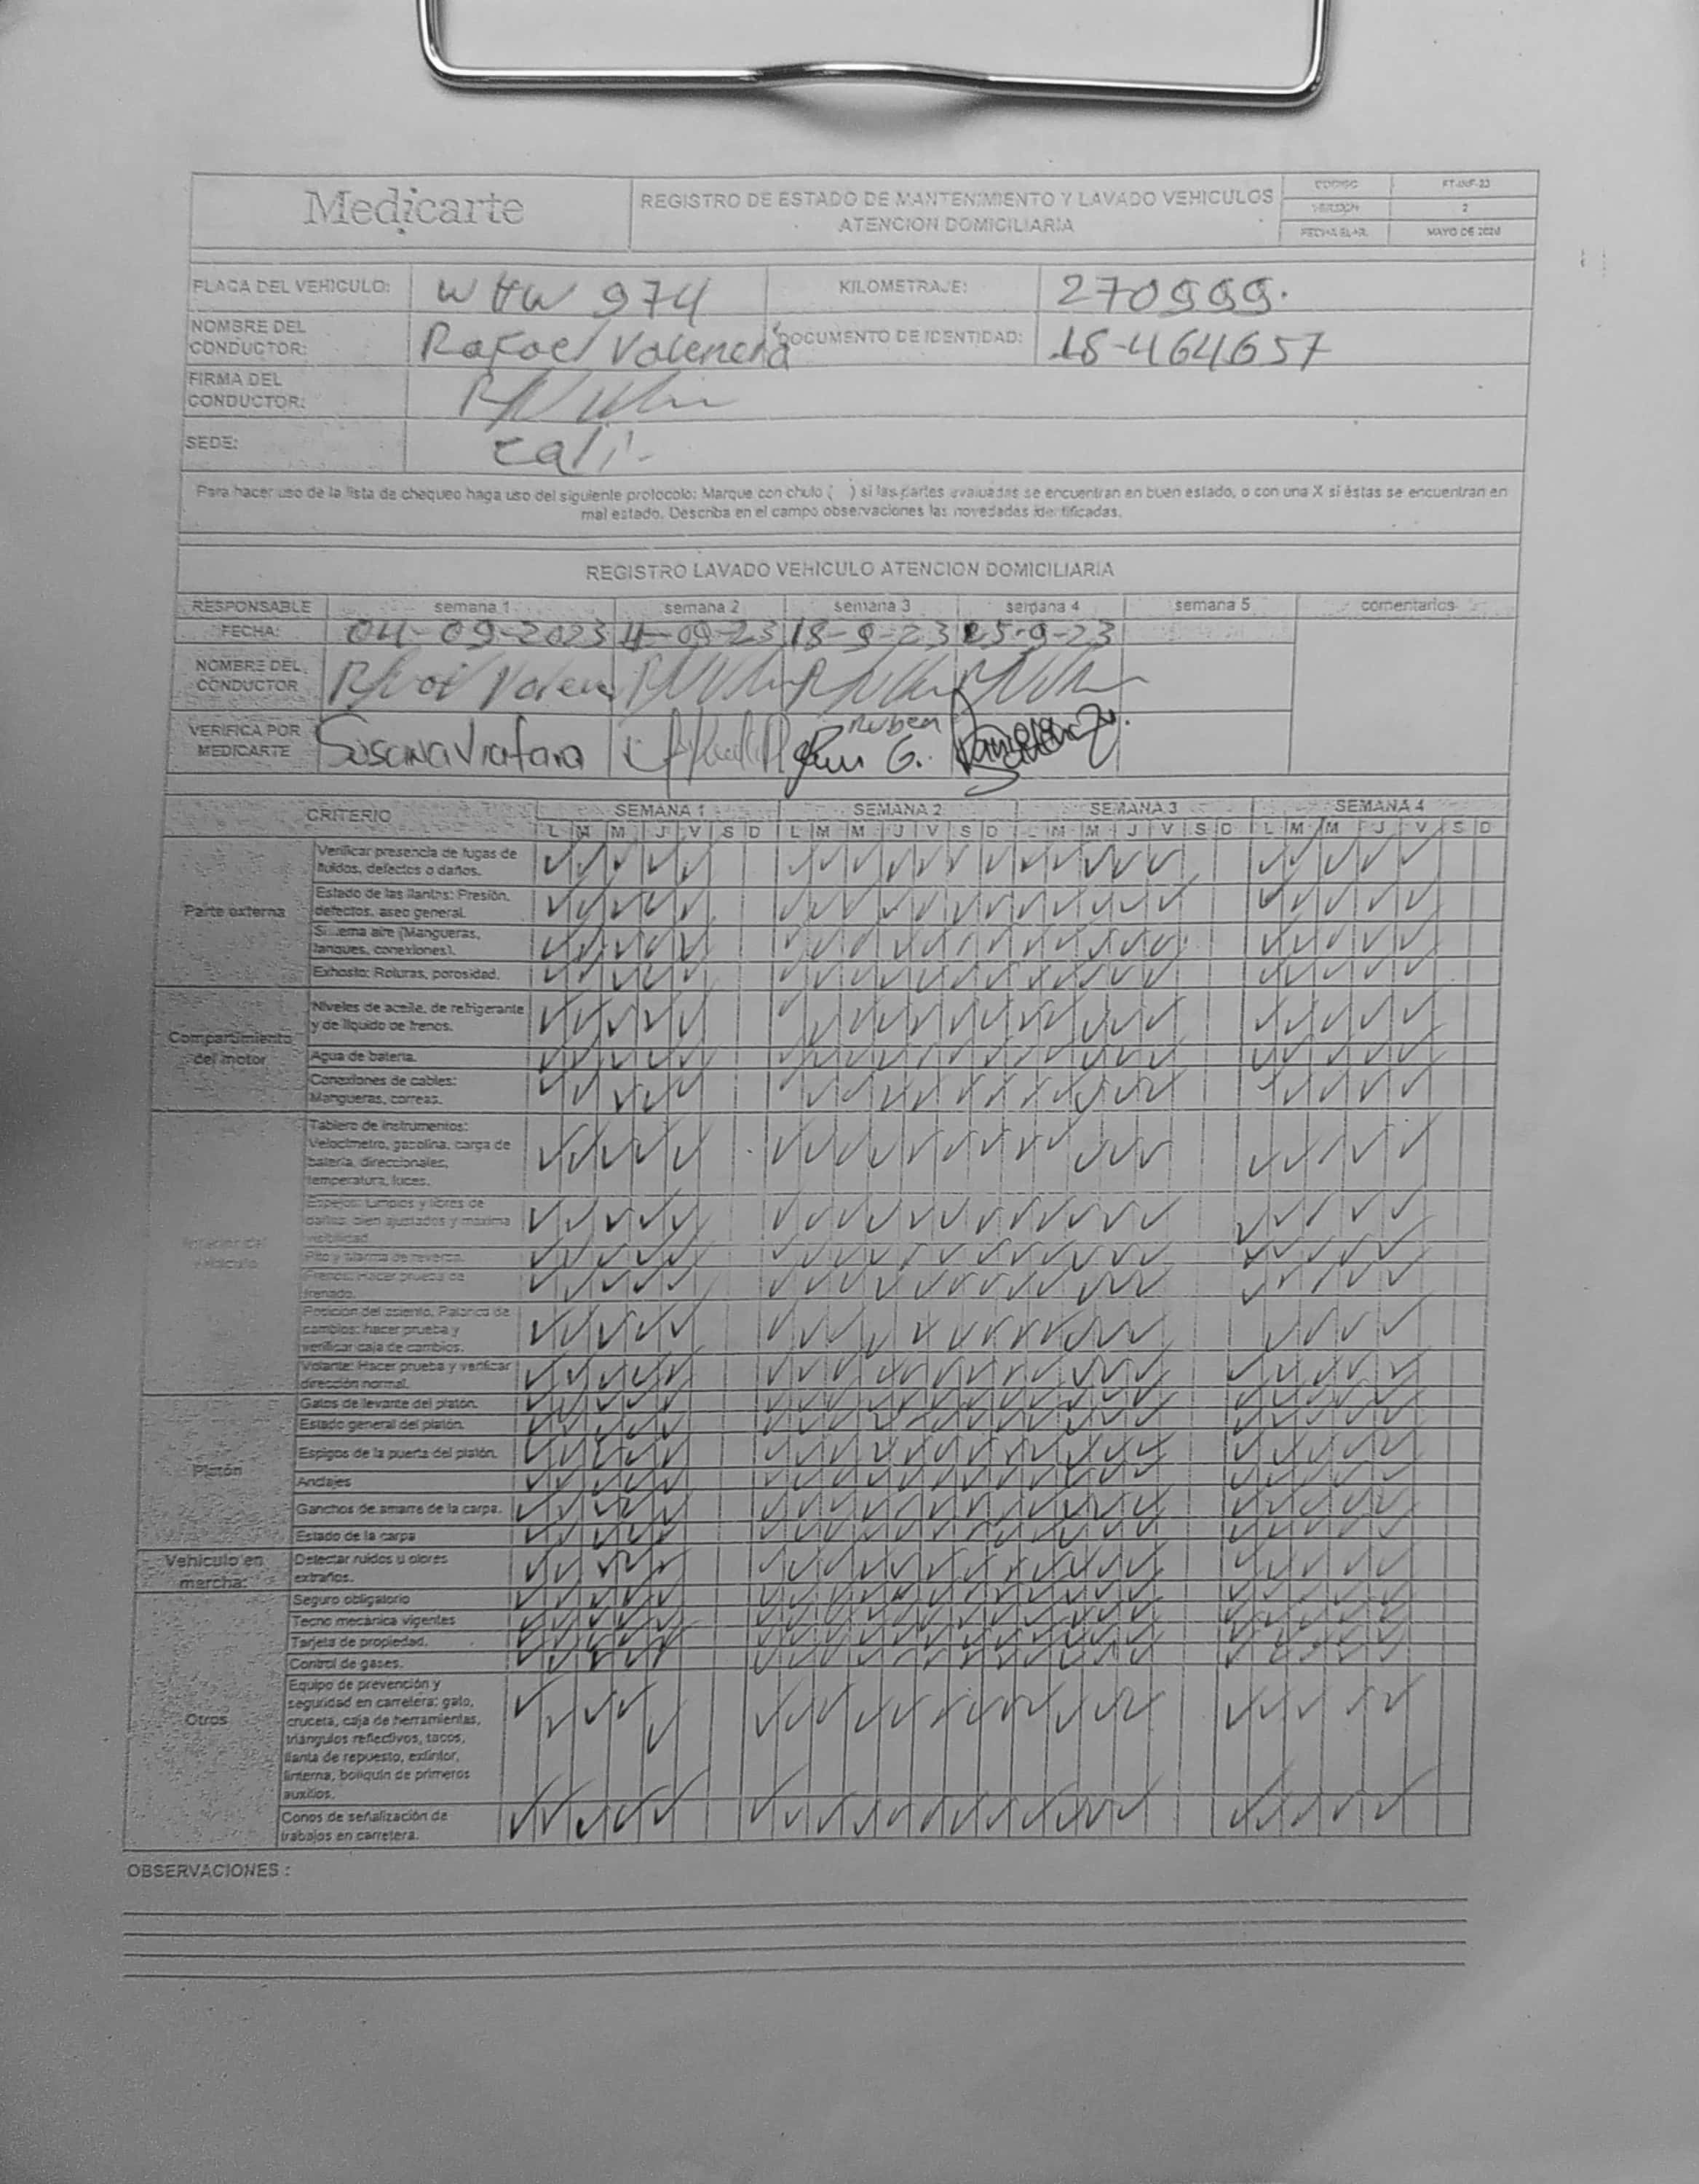 Medicarte
REGISTRO DE ESTADO DE MANTENIMIENTO Y LAVADO VEHICULOS
ATENCION DOMICILIARIA
CODIGO FT-INF-23
VERSION 2
FECHA ELAR. MAYO DE 2020
PLACA DEL VEHICULO: WHW 974 KILOMETRAJE: 270999.
NOMBRE DEL CONDUCTOR: Rafael Valencia DOCUMENTO DE IDENTIDAD: 18-464657
FIRMA DEL CONDUCTOR:
SEDE: Cali.
Para hacer uso de la lista de chequeo haga uso del siguiente protocolo: Marque con chulo ( ) si las partes evaluadas se encuentran en buen estado, o con una X si éstas se encuentran en
mal estado. Describa en el campo observaciones las novedades identificadas.
REGISTRO LAVADO VEHICULO ATENCION DOMICILIARIA
RESPONSABLE semana 1 semana 2 semana 3 semana 4 semana 5 comentarios
FECHA: 04-09-2023 11-09-23 18-9-23 25-9-23
NOMBRE DEL CONDUCTOR
VERIFICA POR MEDICARTE Susana Viafara Ruben G.
CRITERIO SEMANA 1 SEMANA 2 SEMANA 3 SEMANA 4
L M M J V S D L M M J V S D L M M J V S D L M M J V S D
Parte externa
Verificar presencia de fugas de
fluidos, defectos o daños.
Estado de las llantas: Presión,
defectos, aseo general.
Sistema aire (Mangueras,
tanques, conexiones).
Exhosto: Roturas, porosidad.
Compartimiento
del motor
Niveles de aceite, de refrigerante
y de líquido de frenos.
Agua de batería.
Conexiones de cables:
Mangueras, correas.
Interior del
vehículo
Tablero de instrumentos:
Velocímetro, gasolina, carga de
batería, direccionales,
temperatura, luces.
Espejos: Limpios y libres de
daños, bien ajustados y maxima
visibilidad
Pito y alarma de reversa.
Frenos: Hacer prueba de
frenado.
Posición del asiento, Palanca de
cambios: hacer prueba y
verificar caja de cambios.
Volante: Hacer prueba y verificar
dirección normal.
Platón
Gatos de levante del platón.
Estado general del platón.
Espigos de la puerta del platón.
Anclajes
Ganchos de amarre de la carpa.
Estado de la carpa
Vehiculo en
marcha:
Detectar ruidos u olores
extraños.
Otros
Seguro obligatorio
Tecno mecánica vigentes
Tarjeta de propiedad.
Control de gases.
Equipo de prevención y
seguridad en carretera: gato,
cruceta, caja de herramientas,
triángulos reflectivos, tacos,
llanta de repuesto, extintor,
linterna, botiquín de primeros
auxilios.
Conos de señalización de
trabajos en carretera.
OBSERVACIONES :